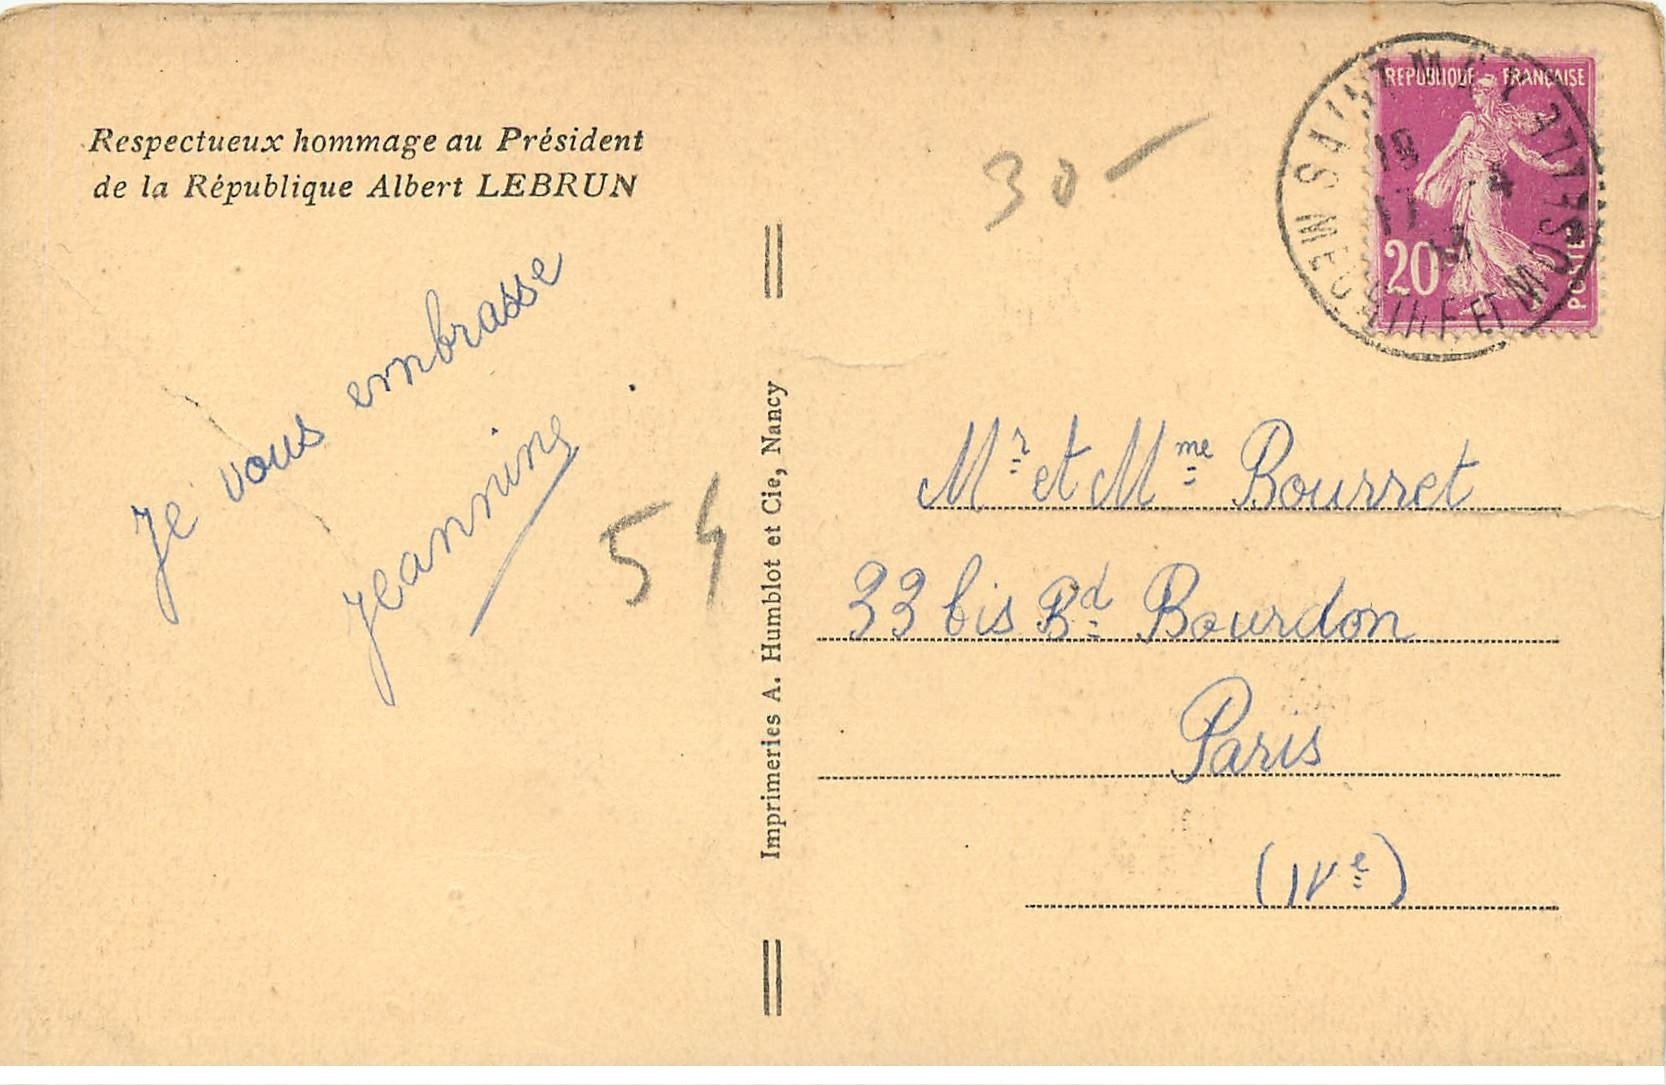 Respectueux hommage au Président
de la République Albert LEBRUN
Je vous embrasse
Jeannine
54
Imprimeries A. Humblot et Cie, Nancy
30-
REPUBLIQUE FRANÇAISE
20c
POSTES
SAINT MAX
MEURTHE ET MOSELLE
18
17 -4
Mr et Mme Bourret
33 bis Bd Bourdon
Paris
(IVe)